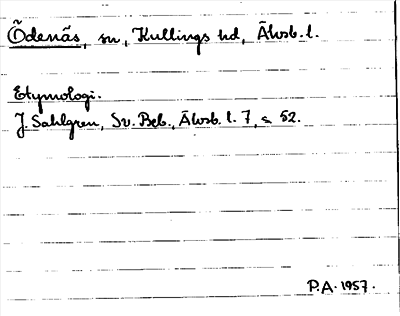 Ödenäs, sn, Kullings hd, Älvsb. l.
Etymologi.
J. Sahlgren, Sv. Beb., Älvsb. l. 7, s. 52.
P.A. 1957.